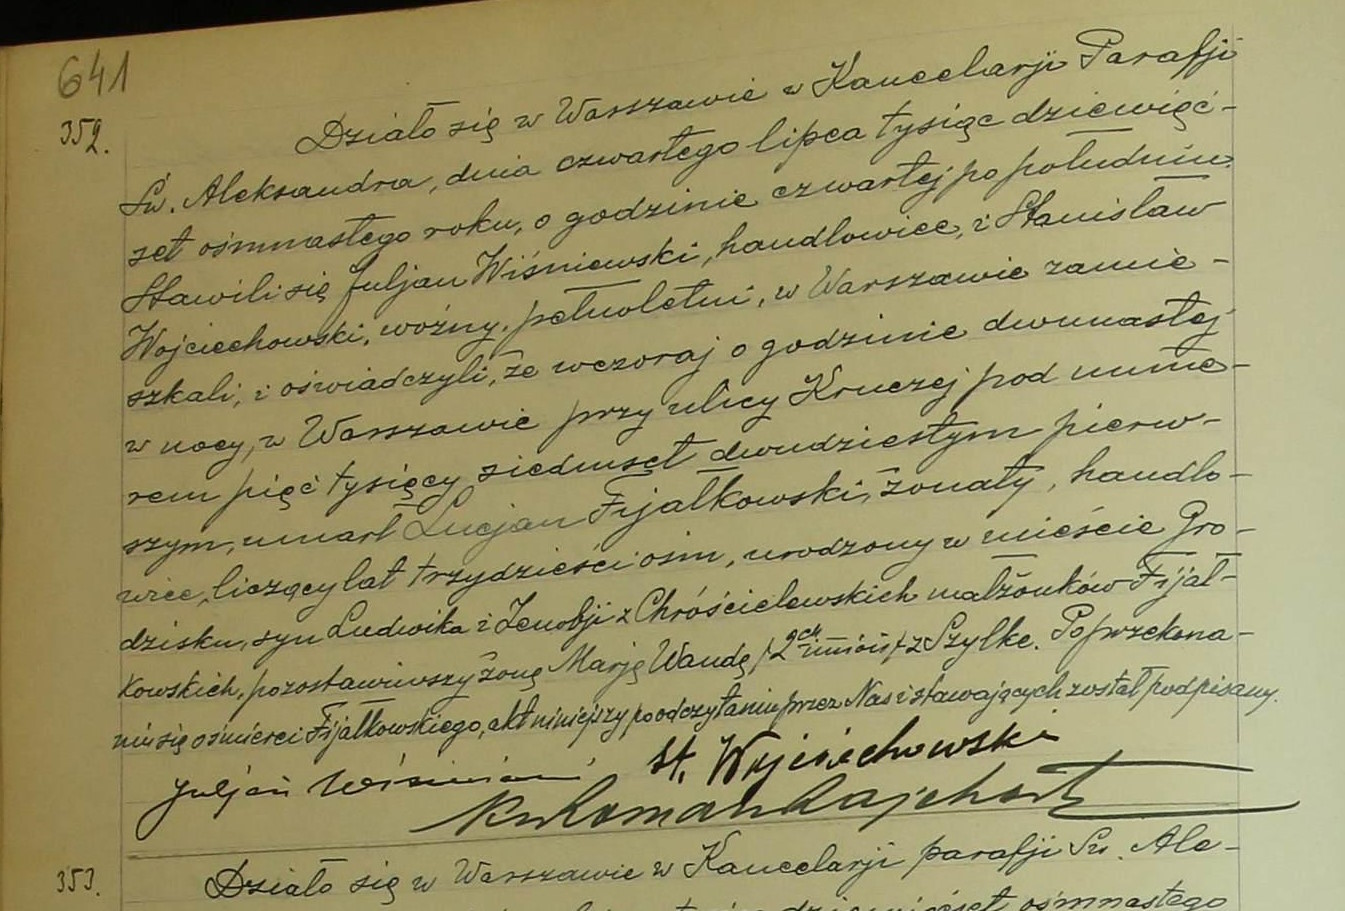 641
352.
Działo się w Warszawie w Kancelarji Parafji
Św. Aleksandra, dnia czwartego lipca tysiąc dziewięć-
set ośmnastego roku, o godzinie czwartej po południu.
Stawili się Juljan Wiśniewski, handlowiec, i Stanisław
Wojciechowski, woźny, pełnoletni, w Warszawie zamie-
szkali, i oświadczyli, że wczoraj o godzinie dwunastej
w nocy, w Warszawie przy ulicy Kruczej pod nume-
rem pięć tysięcy siedmset dwudziestym pierw-
szym, umarł Lucjan Fijałkowski, żonaty, handlo-
wiec, liczący lat trzydzieści ośm, urodzony w mieście Gro-
dzisku, syn Ludwika i Zenobji z Chróścielewskich małżonków Fijał-
kowskich, pozostawiwszy żonę Marję Wandę /2 ch imion/ z Szylke. Po przekona-
niu się o śmierci Fijałkowskiego, akt niniejszy po odczytaniu przez Nas i stawających został podpisany.
Juljan Wiśniewski St. Wojciechowski
Roman Rajchert
353.
Działo się w Warszawie w Kancelarji parafji Św. Ale-
ośmnastego